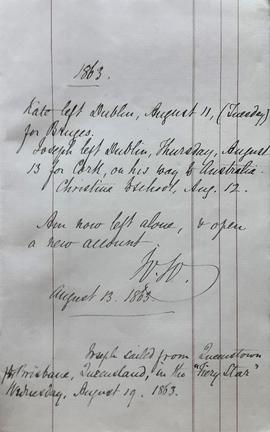 1863.
Kate left Dublin, August 11, (Tuesday)
for Bruges.
Joseph left Dublin, Thursday, August
13 for Cork, on his way to Australia.
Christina School, Aug. 12.
Am now left alone, & open
a new account
W.W.
August 13. 1863
Joseph sailed from Queenstown
for Brisbane, Queensland, in the "Fiery Star"
Wednesday, August 19. 1863.